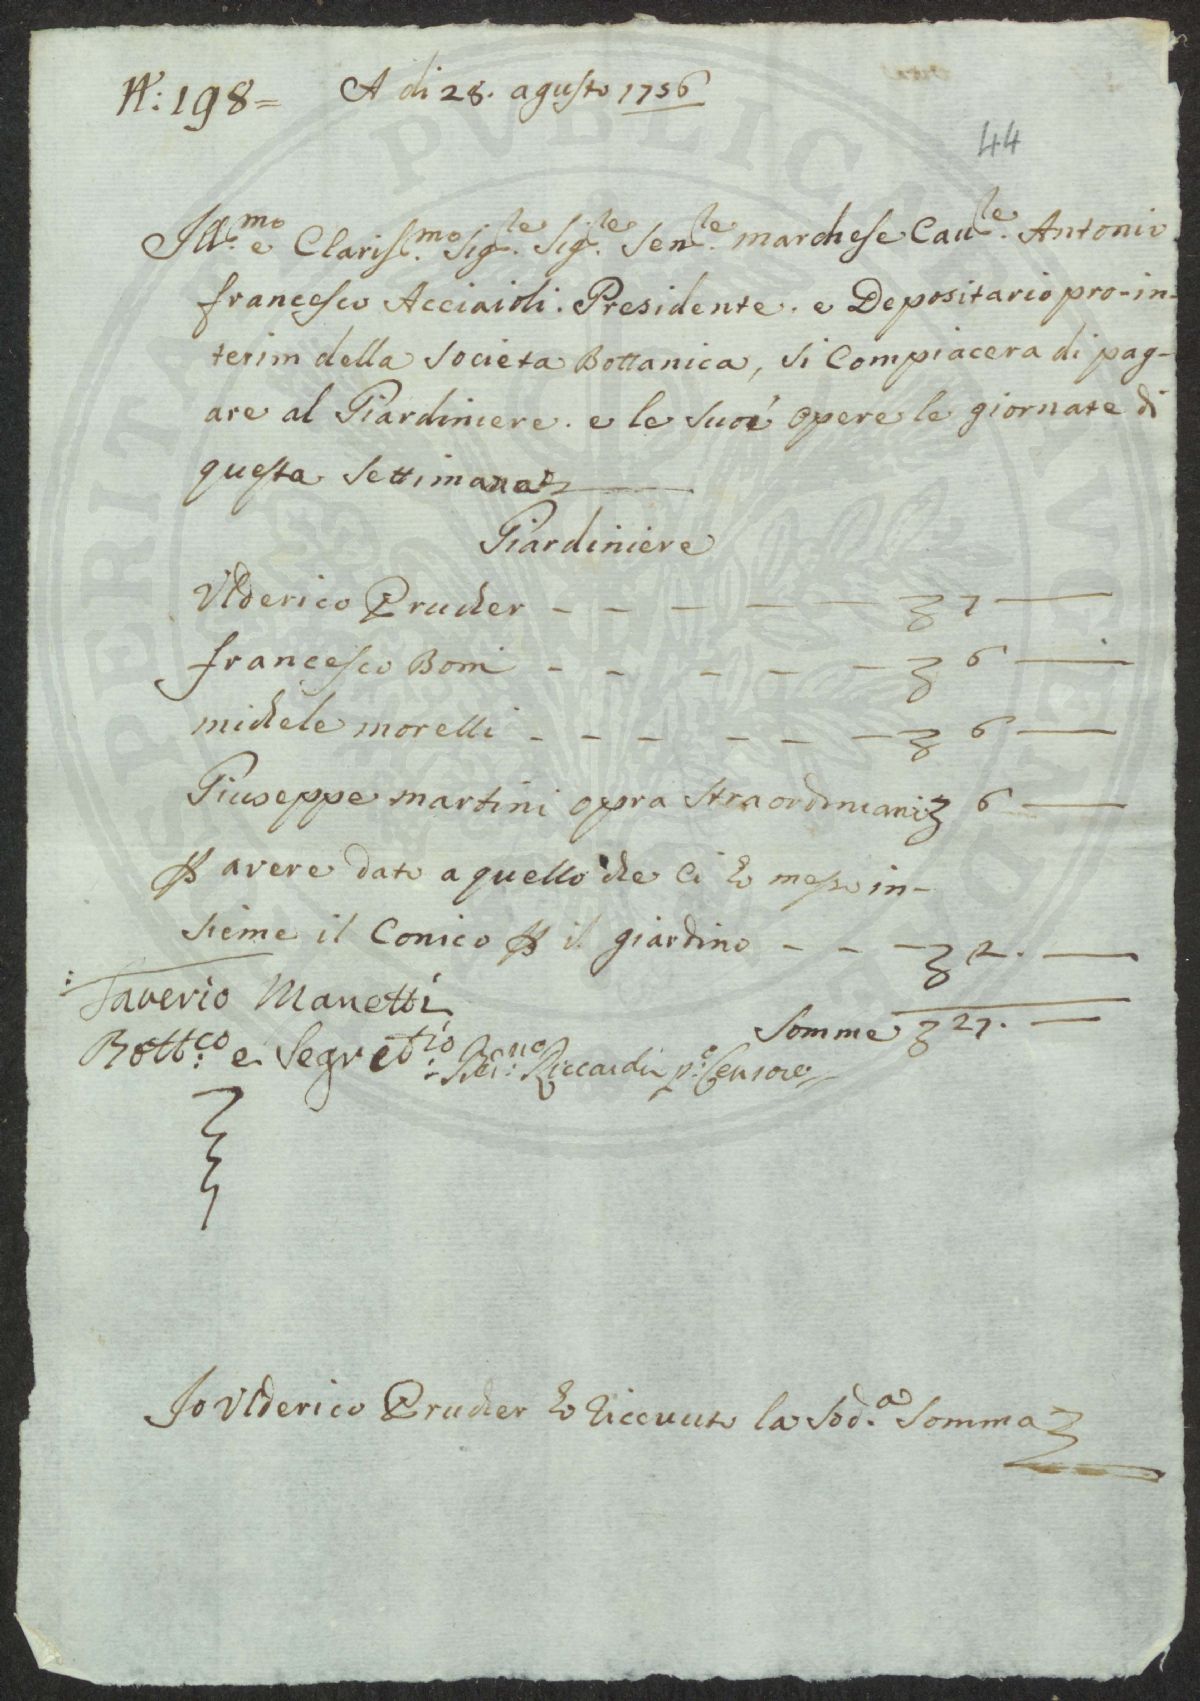 N.: 198=
A di 28. agusto 1756
44
Ill.mo e Clariss.mo Sig.re Sig.re Sen.re marchese Cau.re Antonio
francesco Acciaioli. Presidente. e Depositario pro-in-
terim della Societa Bottanica, si Compiacera di pag-
are al Giardiniere. e le suoi opere le giornate di
questa settimana
Giardiniere
Ulderico Prucher - - - - - 7
francesco Boni - - - - - 6
michele morelli - - - - - - 6
Giuseppe martini opra straordinaria 6
P avere dato a quello che Ci ho messo in-
sieme il Conico P il giardino - - - 2.
Somme 27.
Saverio Manetti
Bott.co e Segret.rio
Riccardi p.o Censore
Io Ulderico Prucher ho riceuuto la Sod.a Somma